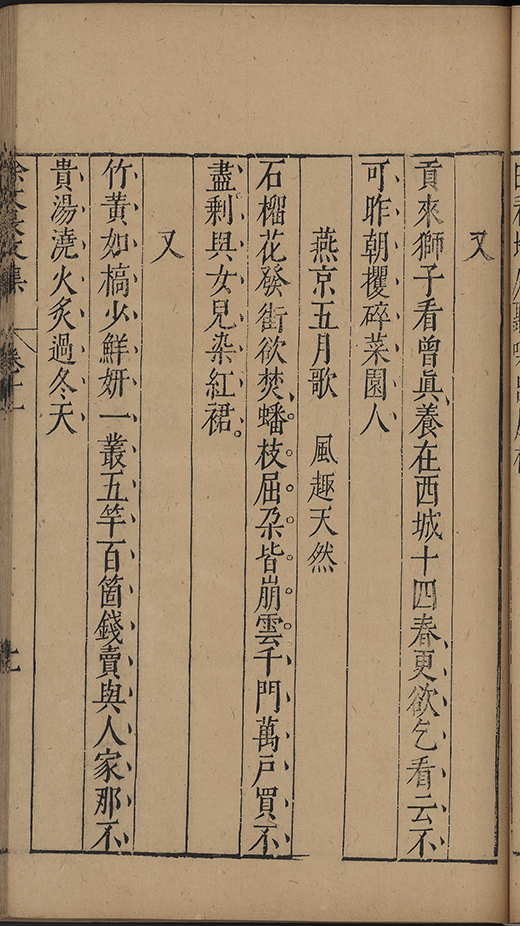 又
貢來獅子看曾眞養在西城十四春更欲乞看云不
可昨朝攫碎菜園人
燕京五月歌　風趣天然
石榴花發街欲焚蟠枝屈朶皆崩雲千門萬戶買不
盡剩與女兒染紅裙
又
竹黃如槁少鮮妍一叢五竿百箇錢賣與人家那不
貴湯澆火炙過冬天
徐文長文集　卷十二